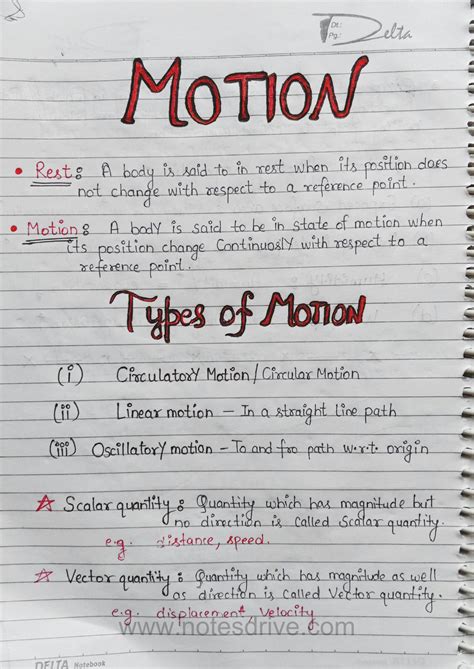 Dt.:
Pg.:
Delta
MOTION
• Rest: A body is said to in rest when its position does
not change with respect to a reference point.
• Motion: A body is said to be in state of motion when
its position change Continuosly with respect to a
reference point.
Types of MOTION
(i) Circulatory Motion / Circular Motion
(ii) Linear motion – In a straight line path
(iii) Oscillatory motion – To and fro path w.r.t. origin
☆ Scalar quantity: Quantity which has magnitude but
no direction is called Scalar quantity.
e.g. distance, speed.
☆ Vector quantity: Quantity which has magnitude as well
as direction is called Vector quantity.
e.g. displacement, Velocity
www.notesdrive.com
DELTA Notebook